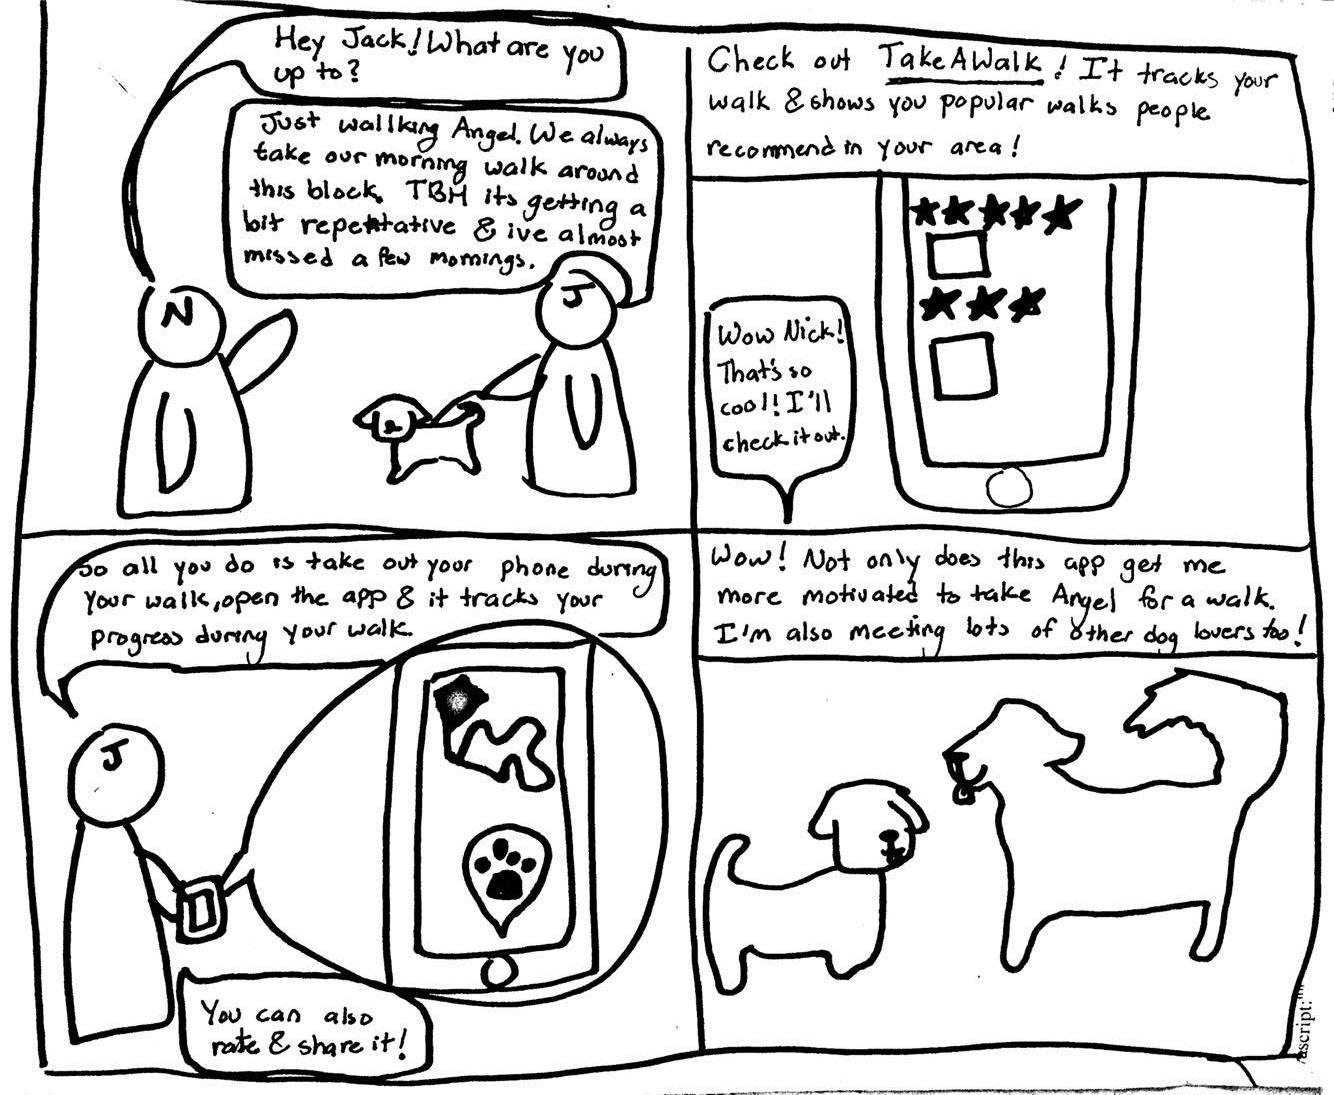 Hey Jack! What are you
up to?
Just wallking Angel. We always
take our morning walk around
this block. TBH its getting a
bit repetitative & ive almost
missed a few mornings.
N
J
Check out TakeAWalk! It tracks your
walk & shows you popular walks people
recommend in your area!
Wow Nick!
That's so
cool! I'll
check it out.
So all you do is take out your phone during
your walk, open the app & it tracks your
progress during your walk.
J
You can also
rate & share it!
Wow! Not only does this app get me
more motivated to take Angel for a walk.
I'm also meeting lots of other dog lovers too!
/ascript:""